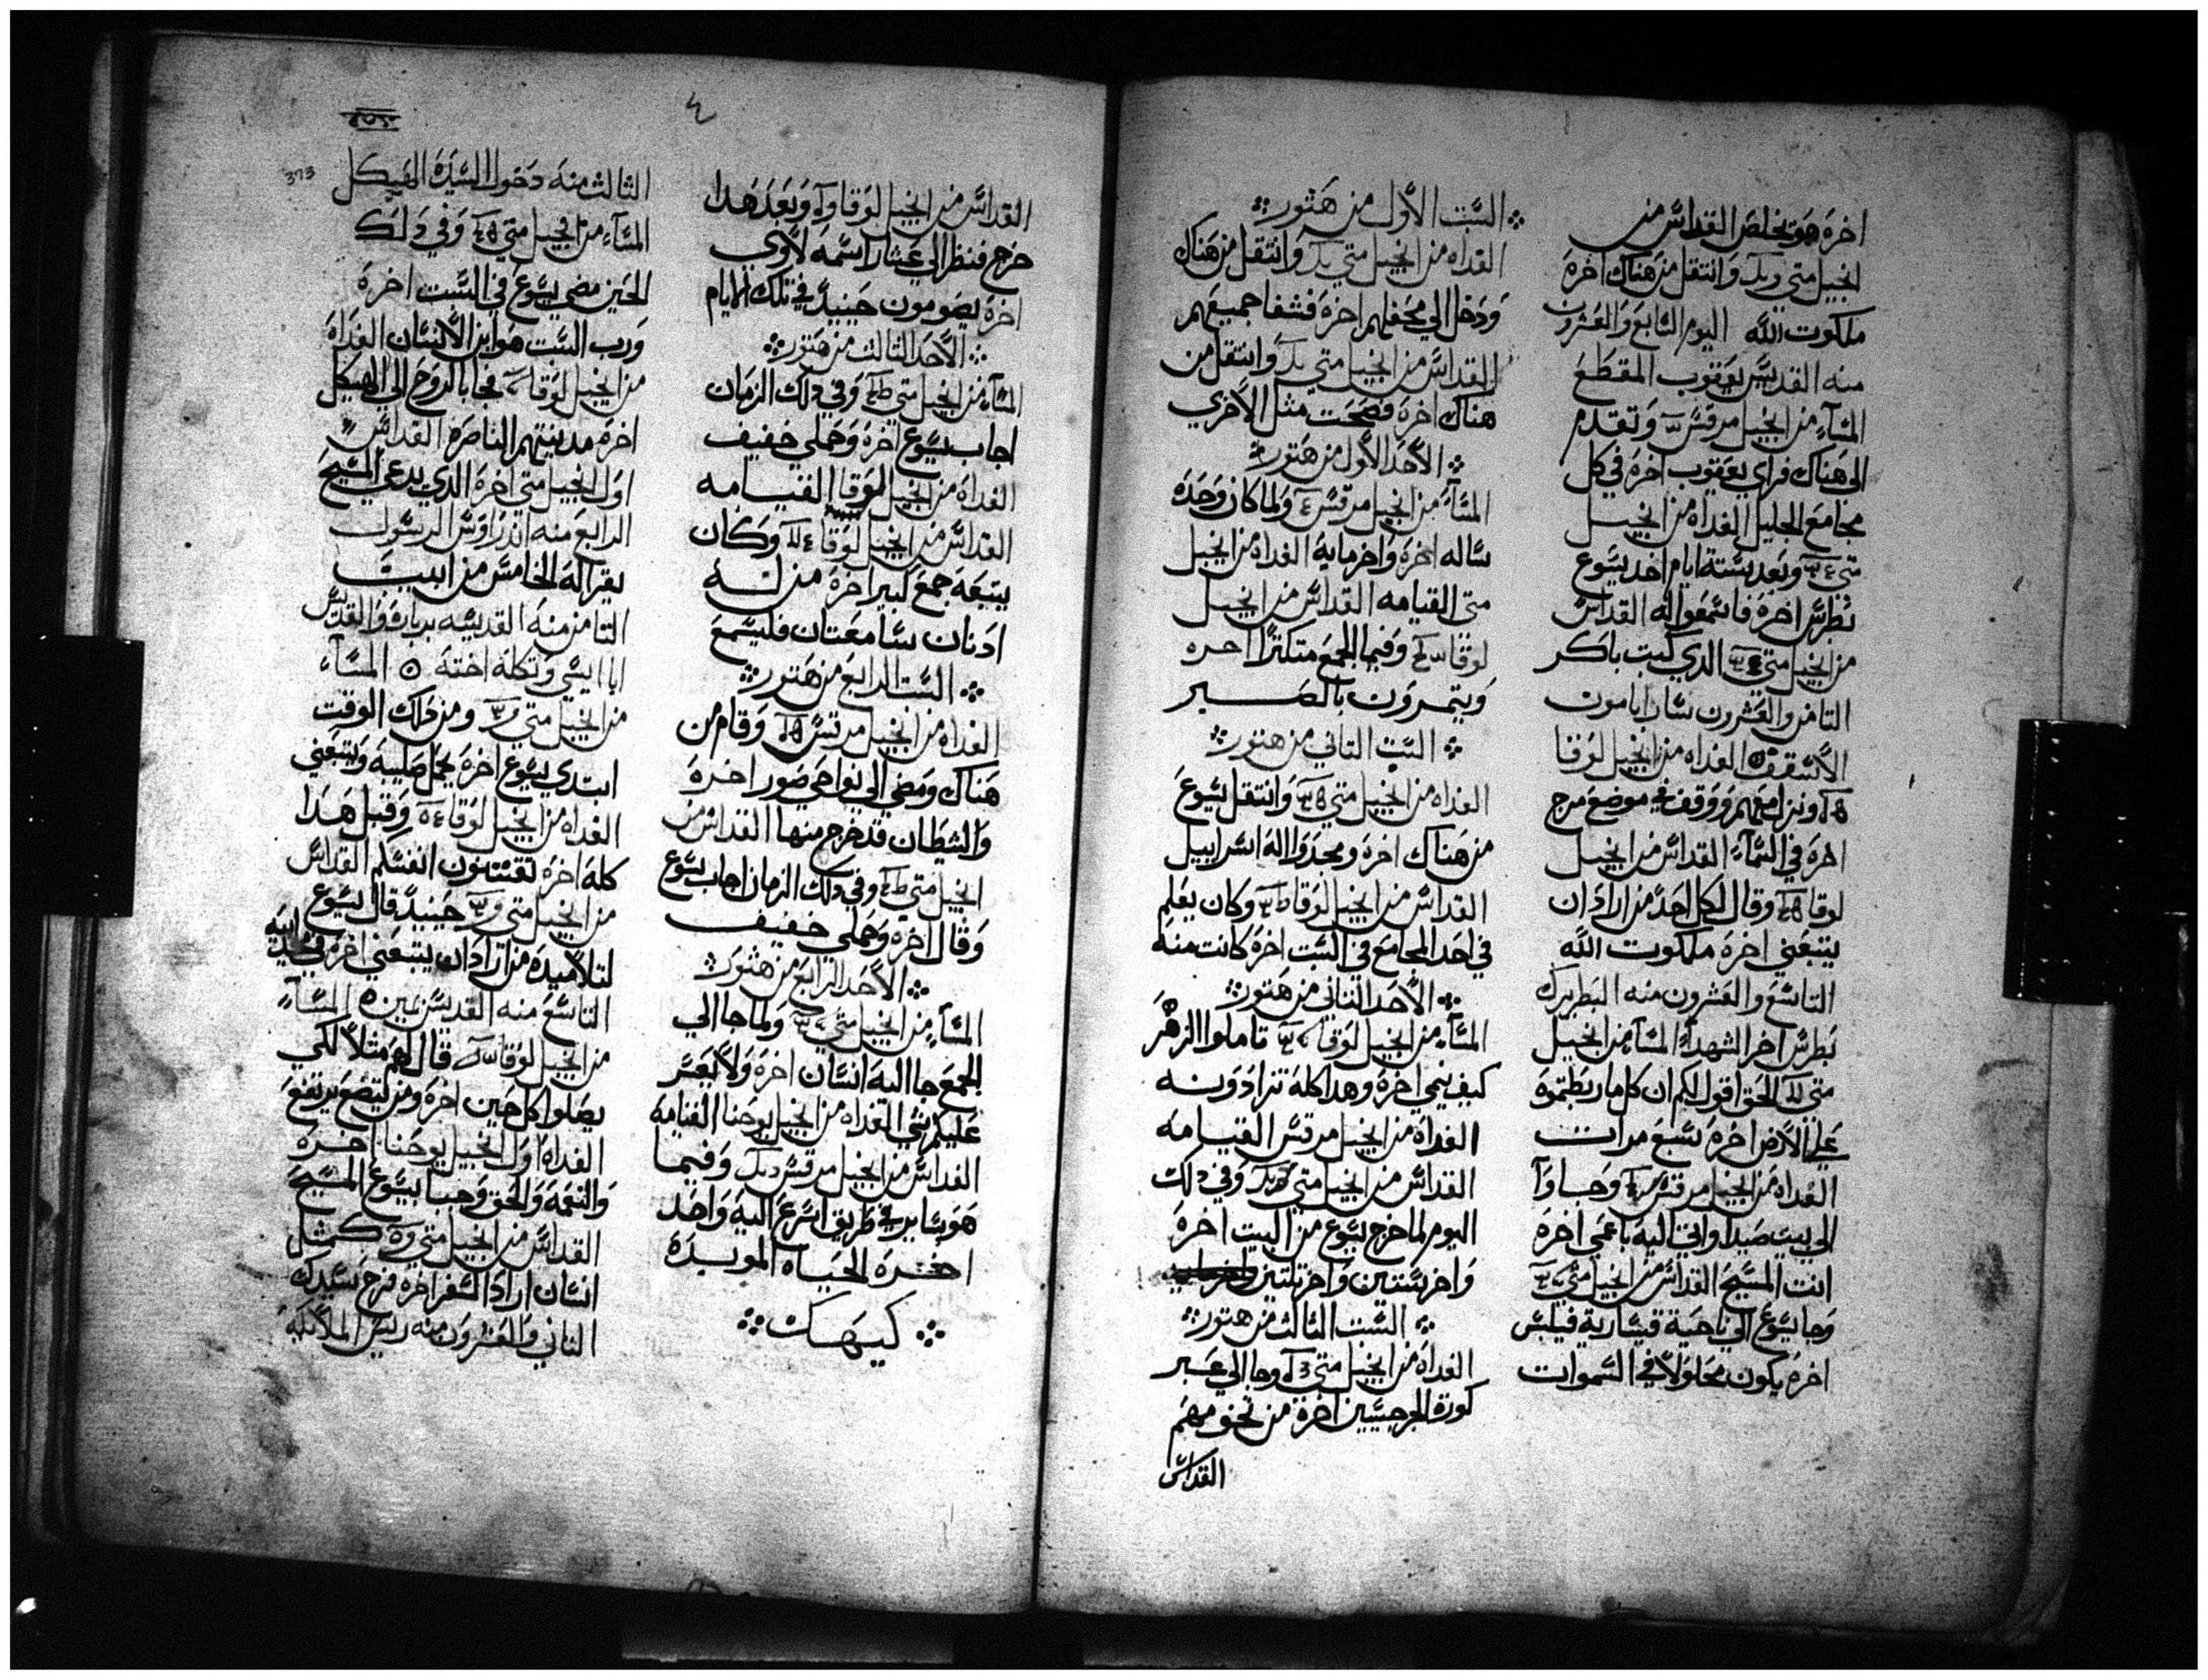 اخره هو يخلص القداس من
انجيل متى وانتقل من هناك اخره
ملكوت الله اليوم السابع والعشرون
منه القديس يعقوب المقطع
المساء من انجيل مرقس وتقدم
الى هناك فراي يعقوب اخره في كل
مجامع الجليل الغداه من انجيل
متى وبعد ستة ايام اخد يسوع
بطرس اخره فاسمعوا له القداس
من انجيل متى الدي كتب باكر
الثامن والعشرون سارابامون
الاسقف الغداه من انجيل لوقا
ونزل معهم ووقف في موضع مرج
اخره في السماء القداس من انجيل
لوقا وقال لكل احد من اراد ان
يتبعني اخره ملكوت الله
التاسع والعشرون منه البطريرك
بطرس اخر الشهداء المساء من انجيل
متى الحق اقول لكم ان كل ما ربطتموه
على الارض اخره سبع مرات
الغداه من انجيل مرقس وجاوا
الى بيت صيدا واتي اليه باعمي اخره
انت المسيح القداس من انجيل متى
وجا يسوع الى ناحية قيسارية فيلبس
اخره يكون محلولا في السموات
السبت الاول من هتور
الغداه من انجيل متى وانتقل من هناك
ودخل الي محفلهم اخره فشفا جميعهم
القداس من انجيل متى وانتقل من
هناك اخره فصحت مثل الاخري
الاحد الاول من هتور
المساء من انجيل مرقس ولما كان وحده
ساله اخره واخر مايه الغداه من انجيل
متى القيامه القداس من انجيل
لوقا وفيما الجمع متكترا اخره
ويتمرون بالصبر
السبت التاني من هتور
الغداه من انجيل متى وانتقل يسوع
من هناك اخره ومجدوا اله اسراييل
القداس من انجيل لوقا وكان يعلم
في احد المجامع في السبت اخره كانت منه
الاحد التاني من هتور
المساء من انجيل لوقا تاملوا الزهر
كيف ينمي اخره وهدا كله تزادونه
الغداه من انجيل مرقس القيامه
القداس من انجيل متى وفي دلك
اليوم لما خرج يسوع من البيت اخره
واخر بستين واخر بتلتين
السبت الثالث من هتور
الغداه من انجيل متى وجا الي عبر
كورة الجرجسيين اخره من نحو منهم
القداس
القداس من انجيل لوقا وبعد هدا
خرج فنظر الي عشار اسمه لاوي
اخره يصومون حينيد في تلك الايام
الاحد الثالث من هتور
المساء من انجيل متى وفي دلك الزمان
اجاب يسوع اخره وحملي خفيف
الغداه من انجيل لوقا القيامه
القداس من انجيل لوقا وكان
يتبعه جمع كبير اخره من له
ادنان سامعتان فليسمع
السبت الرابع من هتور
الغداه من انجيل مرقس وقام من
هناك ومضي الي نواحي صور اخره
والشيطان قد خرج منها القداس من
انجيل متى وفي دلك الزمان اجاب يسوع
وقال اخره وحملي خفيف
الاحد الرابع من هتور
المساء من انجيل متى ولما جا الي
الجمع جا اليه انسان اخره ولا يعسر
عليكم شي الغداه من انجيل يوحنا القيامه
القداس من انجيل مرقس وفيما
هو ساير في طريق اسرع اليه واحد
اخره الحياه الموبده
كيهك
373
الثالث منه دخول السيده الهيكل
المساء من انجيل متى وفي دلك
الحين مضي يسوع في السبت اخره
ورب السبت هو ابن الانسان الغداه
من انجيل لوقا فجا بالروح الي الهيكل
اخره مدينتهم الناصره القداس
اول انجيل متى اخره الدي يدعي المسيح
الرابع منه اندراوس الرسول
يقرا له الخامس من ابيب
الثامن منه القديسه برباره والقديس
ابا ايسي وتكله اخته المساء
من انجيل متى ومن دلك الوقت
ابتدي يسوع اخره يحمل صليبه ويتبعني
الغداه من انجيل لوقا وقبل هدا
كله اخره تقتنون انفسكم القداس
من انجيل متى حينيد قال يسوع
لتلاميده من اراد ان يتبعني اخره في مجد ابيه
التاسع منه القديس بمين المساء
من انجيل لوقا قال لهم مثلا لكي
يصلوا كل حين اخره ومن يتضع يرتفع
الغداه اول انجيل يوحنا اخره
والنعمه والحق وجبا بيسوع المسيح
القداس من انجيل متى كمثل
انسان اراد السفر اخره فرح سيدك
الثاني والعشرون منه رييس الملايكه